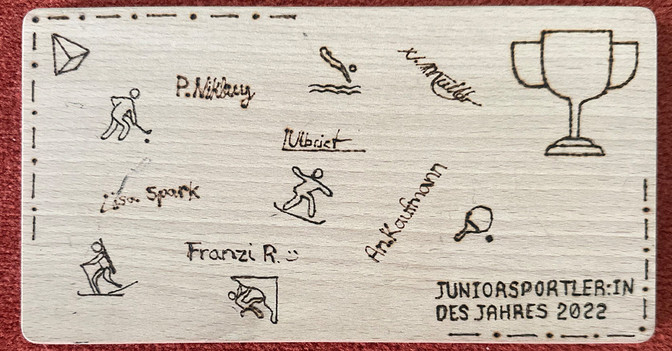 P. Nikbuy
N. Müller
Ulbrict
Lisa Spark
An.Kaufmann
Franzi R. :)
JUNIORSPORTLER:IN
DES JAHRES 2022